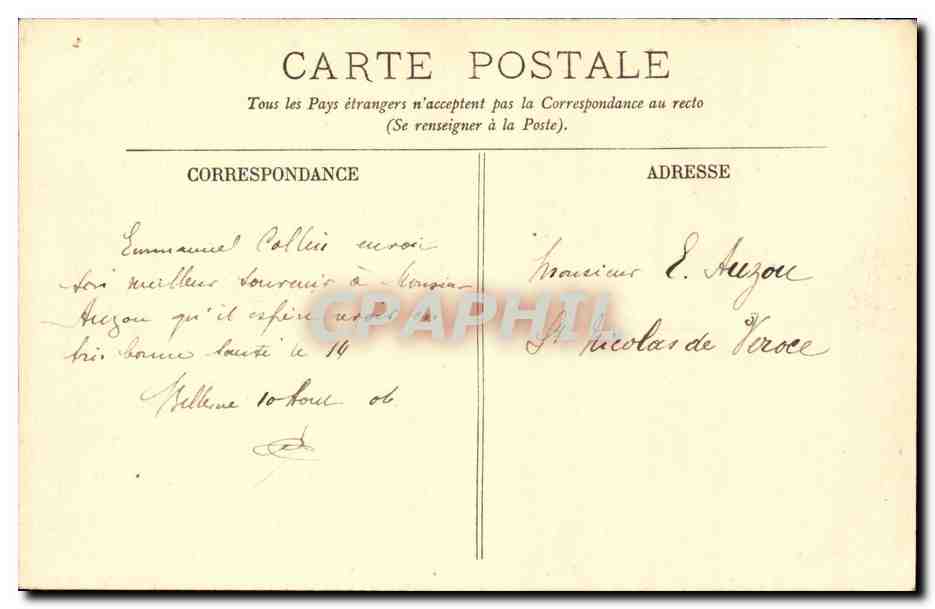 CARTE POSTALE
Tous les Pays étrangers n'acceptent pas la Correspondance au recto
(Se renseigner à la Poste).
CORRESPONDANCE
ADRESSE
Emmanuel Collin envoie
son meilleur souvenir à Monsieur
Auzou qu'il espère revoir en
très bonne santé le 14
10 Aout 06
Monsieur E. Auzou
St Nicolas de Véroce
CPAPHIL